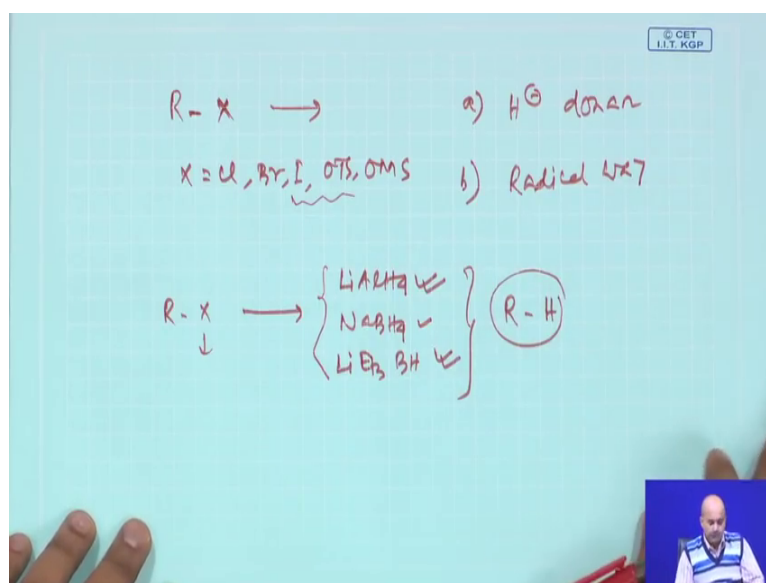 © CET
I.I.T. KGP
R - X ⟶ a) H⊖ donar
X = Cl, Br, I, OTs, OMS b) Radical
R - X ⟶ { LiAlH4 ✓ } R - H
NaBH4 ✓
LiEt3 BH ✓